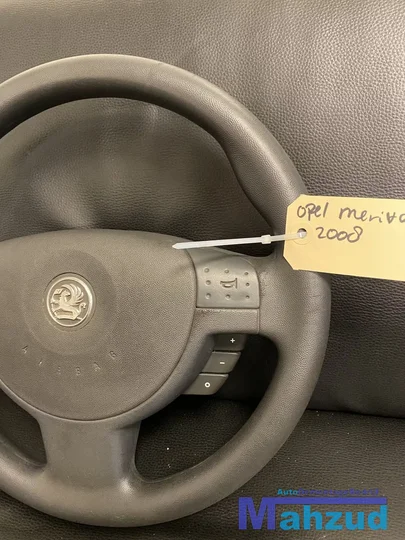 opel meriva
2008
AIRBAG
+
−
o
Auto
Mahzud